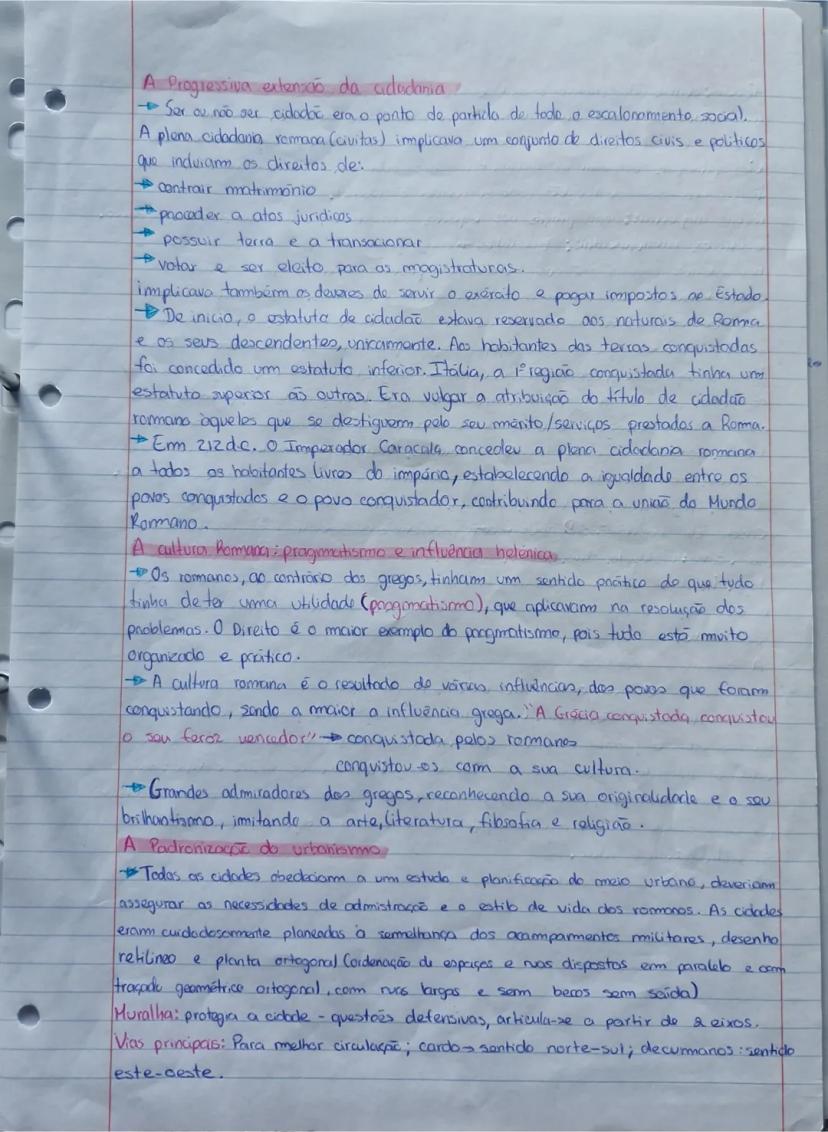 A Progressiva extensão da cidadania
→ Ser ou não ser cidadão era o ponto de partida de todo o escalonamento social.
A plena cidadania romana (civitas) implicava um conjunto de direitos civis e políticos
que incluiam os direitos de:
→ contrair matrimónio
→ proceder a atos jurídicos
→ possuir terra e a transacionar
→ votar e ser eleito para as magistraturas.
implicava também os deveres de servir o exército e pagar impostos ao Estado.
→ De início, o estatuto de cidadão estava reservado aos naturais de Roma
e os seus descendentes, unicamente. Aos habitantes das terras conquistadas
foi concedido um estatuto inferior. Itália, a 1º região conquistada tinha um
estatuto superior às outras. Era vulgar a atribuição do título de cidadão
romano àqueles que se destiguem pelo seu mérito/serviços prestados a Roma.
→ Em 212 d.c. O Imperador Caracala concedeu a plena cidadania romana
a todos os habitantes livres do império, estabelecendo a igualdade entre os
povos conquistados e o povo conquistador, contribuindo para a união do Mundo
Romano.
A cultura Romana: pragmatismo e influência helénica
→ Os romanos, ao contrário dos gregos, tinham um sentido prático de que tudo
tinha de ter uma utilidade (pragmatismo), que aplicavam na resolução dos
problemas. O Direito é o maior exemplo do pargmatismo, pois tudo está muito
organizado e prático.
→ A cultura romana é o resultado de várias influências, dos povos que foram
conquistando, sendo a maior a influência grega. "A Grécia conquistada conquistou
o seu feroz vencedor" → conquistada pelos romanos
conquistou-os com a sua cultura.
→ Grandes admiradores dos gregos, reconhecendo a sua originalidade e o seu
brilhantismo, imitando a arte, literatura, filosofia e religião.
A Padronização do urbanismo
→ Todas as cidades obedeciam a um estudo e planificação do meio urbano, deveriam
assegurar as necessidades de admistração e o estilo de vida dos romanos. As cidades
eram cuidadosamente planeadas à semelhança dos acampamentos militares, desenho
retilíneo e planta ortogonal (ordenação de espaços e ruas dispostas em paralelo e com
traçado geométrico ortogonal, com ruas largas e sem becos sem saída)
Muralha: protegia a cidade - questões defensivas, articula-se a partir de 2 eixos.
Vias principais: Para melhor circulação; cardo → sentido norte-sul; decumanos: sentido
este-oeste.